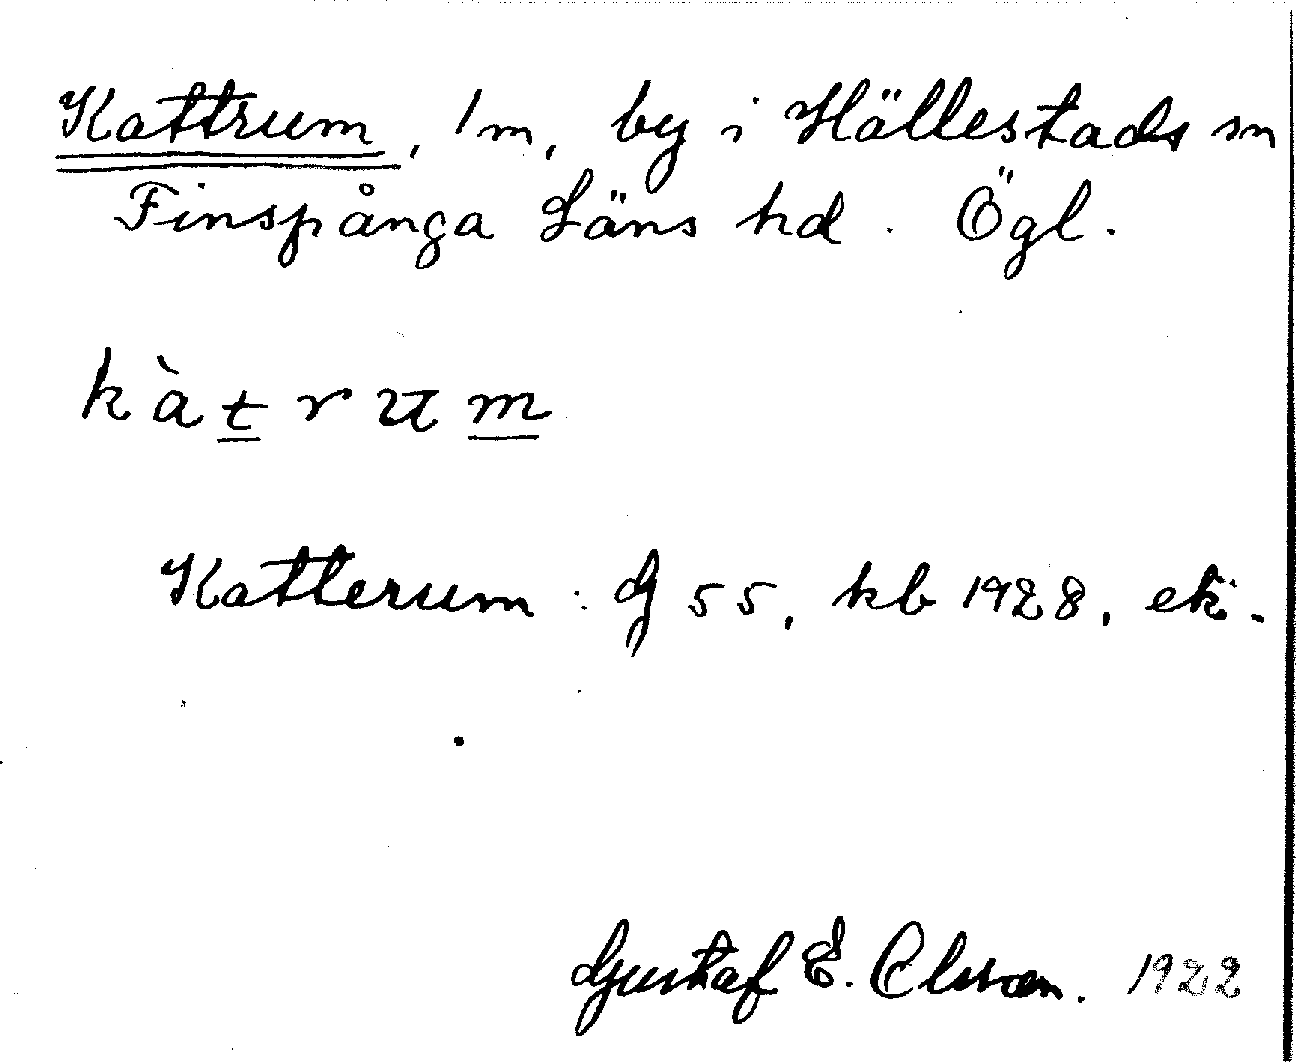 Kattrum, 1m, by i Hällestads sn
Finspånga Läns hd. Ögl.
kàtrum
Katterum: G 55, kb 1928, ek.
Gustaf E. Olsson. 1922